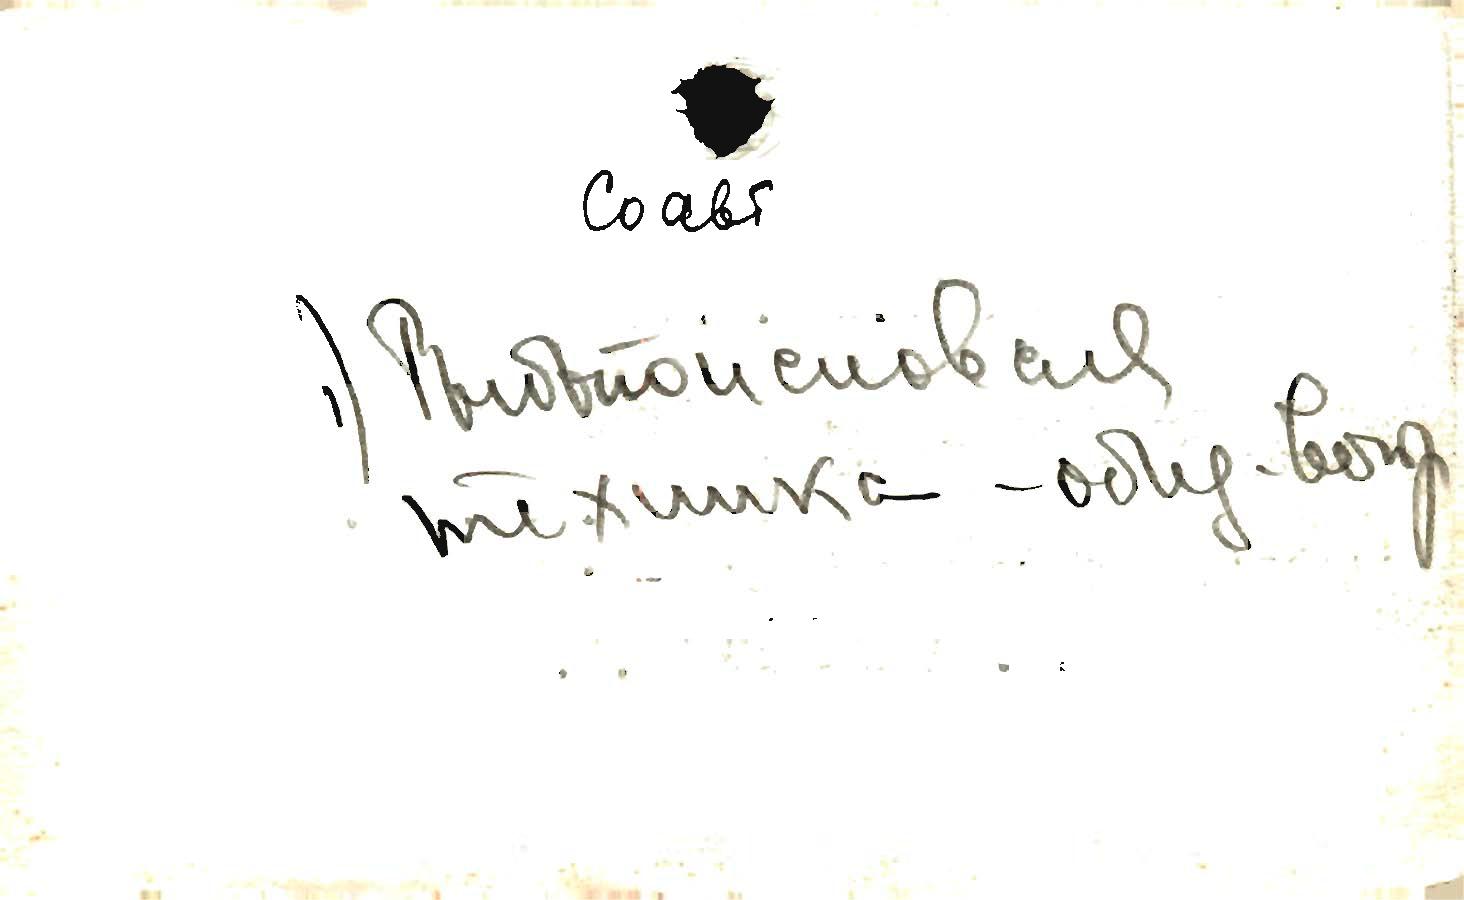 Соавт
1) Рыбопоисковая
техника - общ. вопр